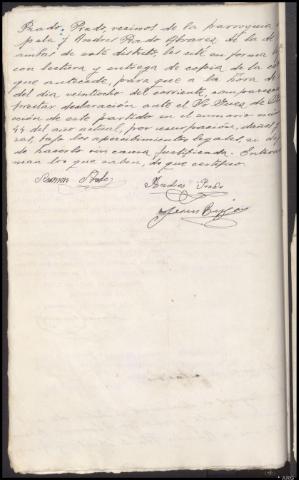 Prado Prado, vecinos de la parroquia
y Andres Prado Alvarez, de la d
de este distrito les cité en forma
con lectura y entrega de copia de la
que antecede, para que a la hora d
del dia veintiocho del corriente, comparezcan
prestar declaración ante el Sr Juez de
ción de este partido en el sumario
44 del año actual, por usurpación, daños y
bajo los apercibimientos legales, si
de hacerlo sin causa justificada.
man los que saben, de que certifico
Ramon Prado
Andres Prado
Jesus